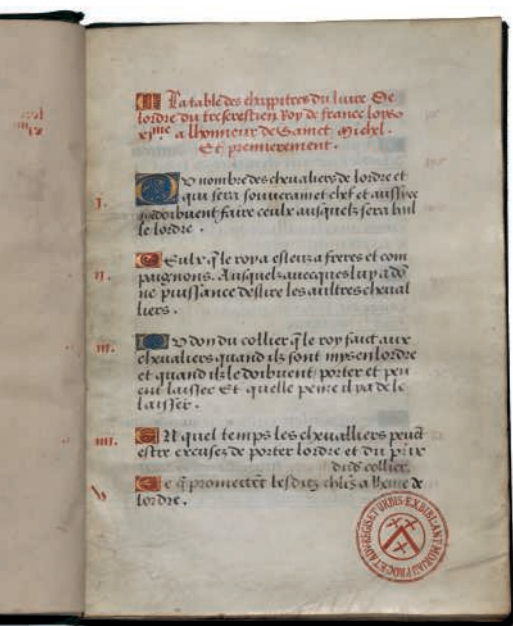 La table des chappitres du livre De
lordre du trescrestien Roy de france loys
xjme a lhonneur de Sainct Michel.
Et premierement.
I.
Du nombre des chevaliers de lordre et
qui sera souverainet chef et aussi q̄
doibvent faire ceulx ausquelz sera bail
le lordre.
II.
Ceulx q̄ le roy a esleuz a freres et com
paignons. Ausquelz avecques luy a dō
ne puissance deslire les aultres cheval
liers.
III.
Du don du collier q̄ le roy fait aux
chevaliers quand ilz sont mys en lordre
et quand ilz le doibvent porter et peu
ent laisser Et quelle peine il y a de le
laisser.
IIII.
En quel temps les chevalliers peuēt
estre excusez de porter lordre et du prix
dudt collier.
V
Ce q̄ promectēt lesditz chl̄rs a lheure de
lordre.
EX BIBL. ANT. MORIAU PROC. ET ADV. REGIS ET URBIS